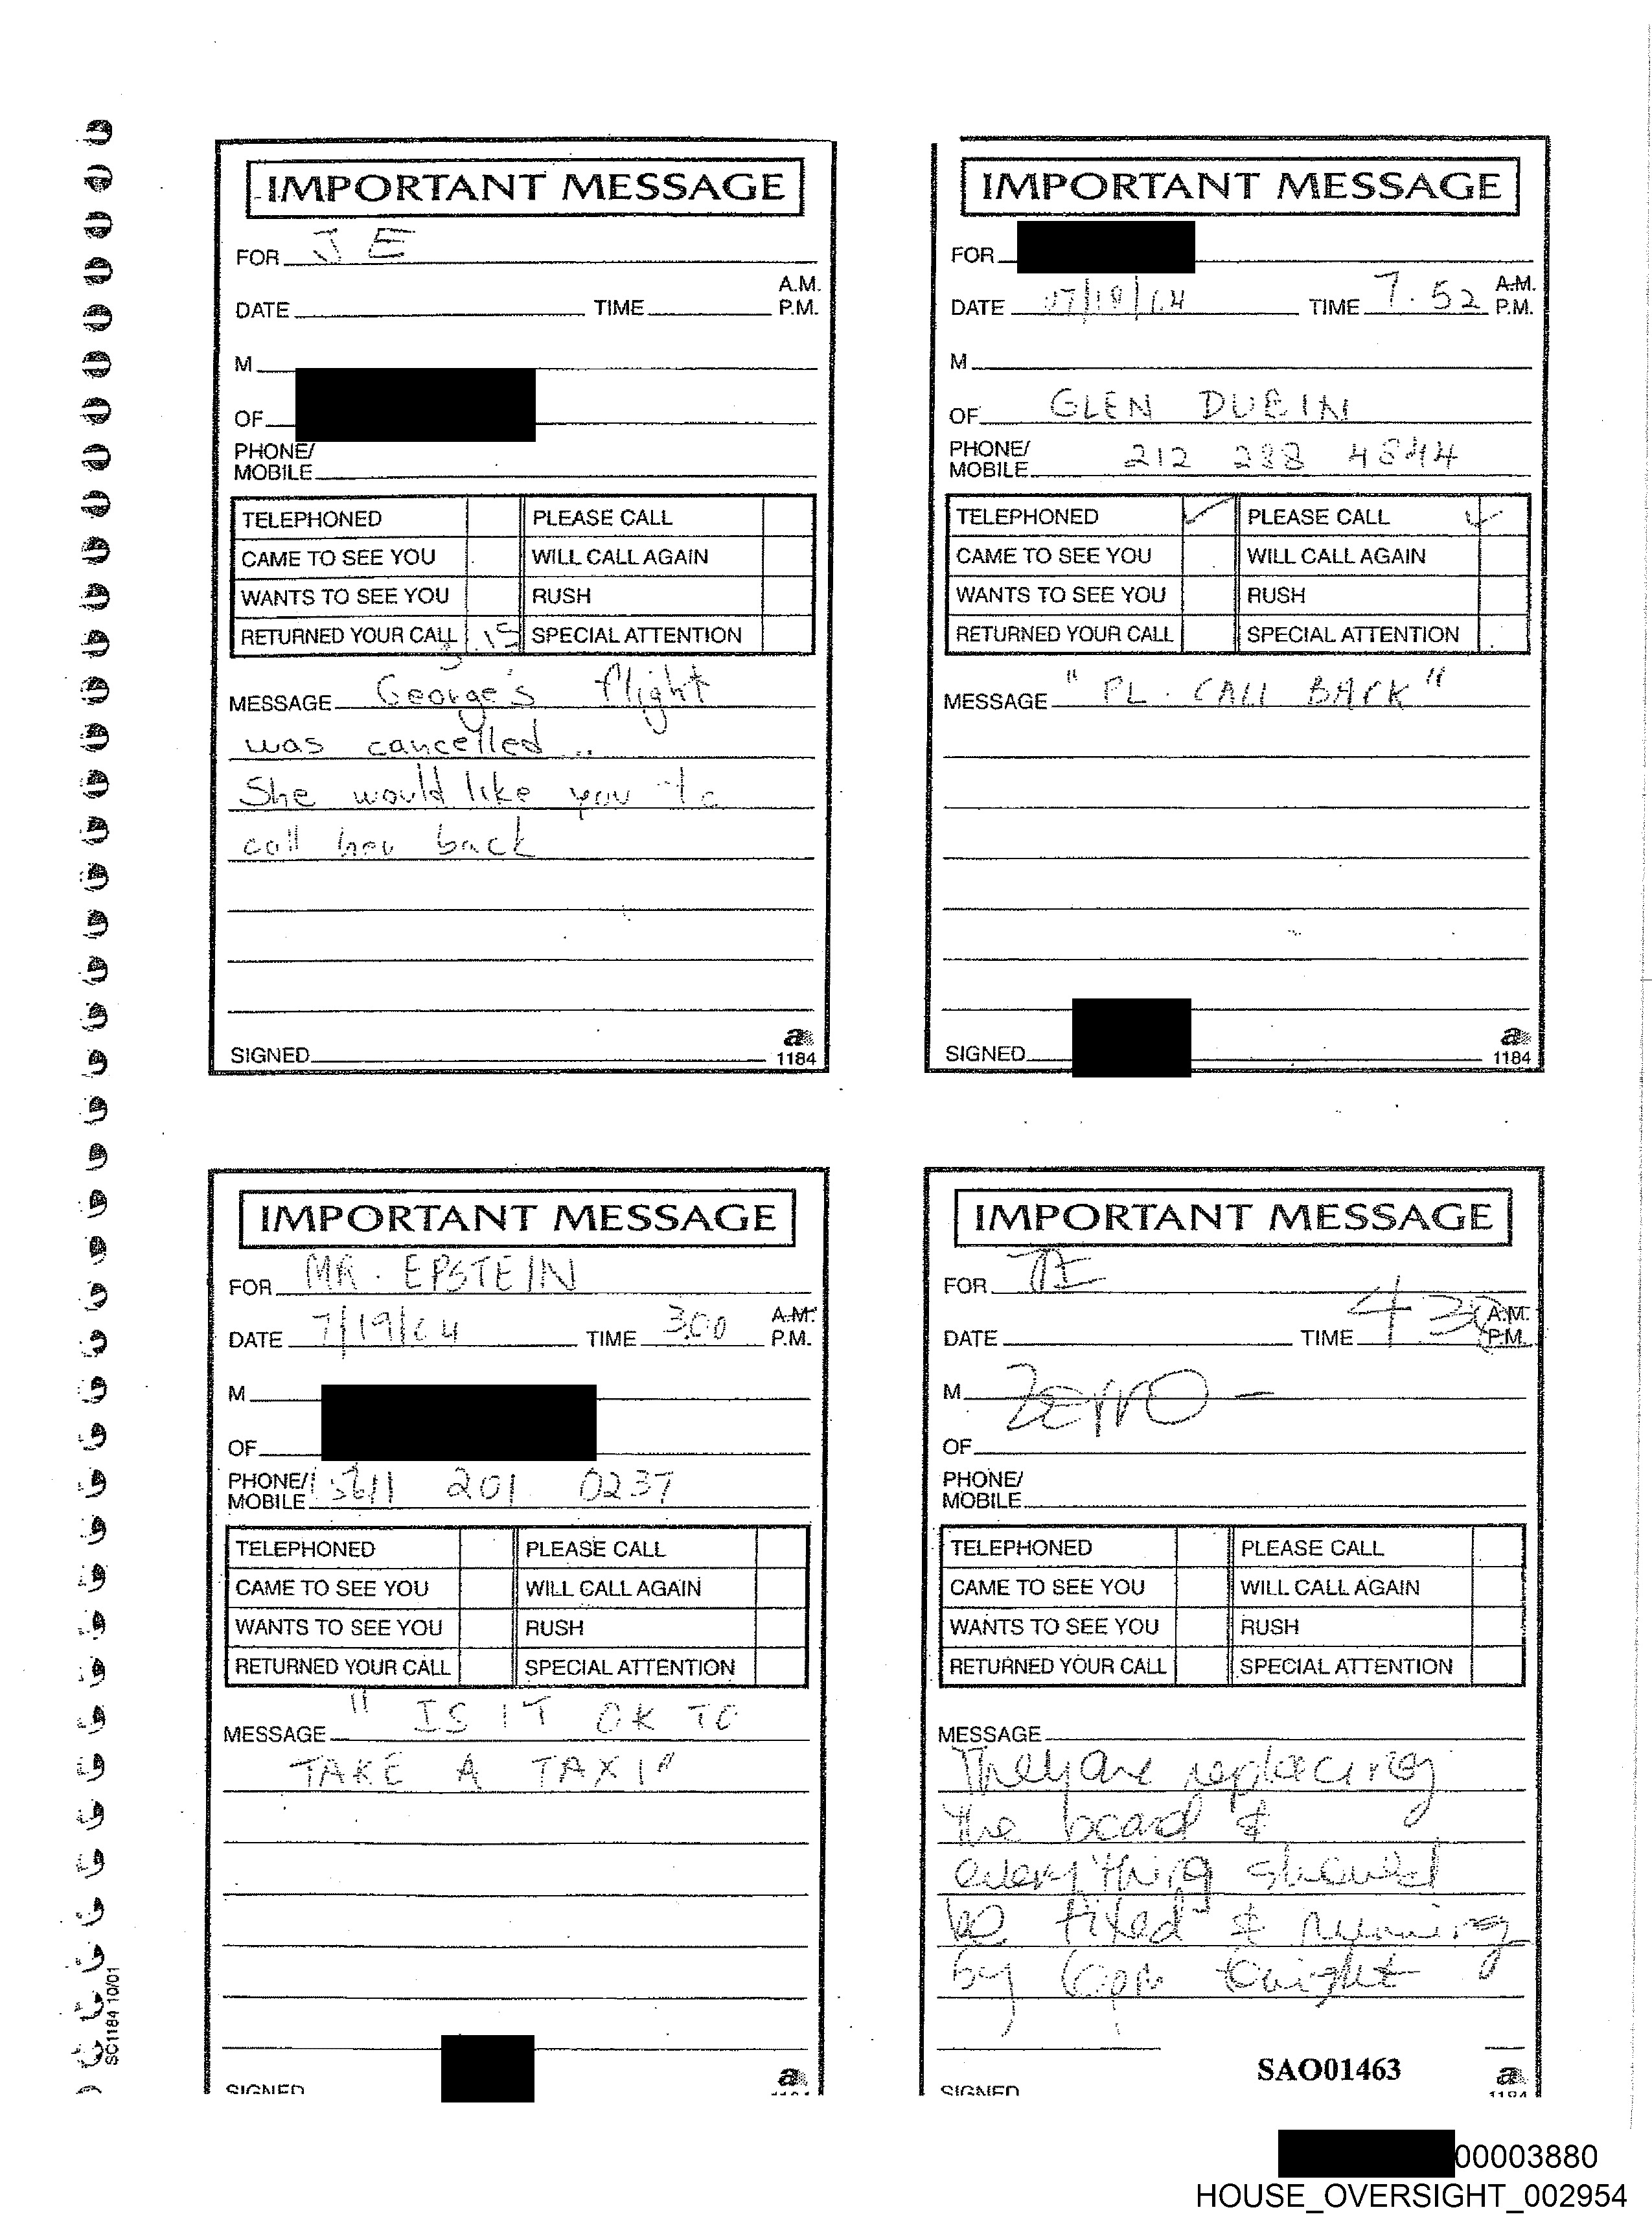 IMPORTANT MESSAGE
FOR J E
A.M.
DATE TIME P.M.
M
OF
PHONE/
MOBILE
TELEPHONED PLEASE CALL
CAME TO SEE YOU WILL CALL AGAIN
WANTS TO SEE YOU RUSH
RETURNED YOUR CALL SPECIAL ATTENTION
MESSAGE George's flight
was cancelled ..
She would like you to
call her back
SIGNED
a
1184
IMPORTANT MESSAGE
FOR
A.M.
DATE TIME 7.52 P.M.
M
OF GLEN DUBIN
PHONE/
MOBILE 212 288 4844
TELEPHONED PLEASE CALL
CAME TO SEE YOU WILL CALL AGAIN
WANTS TO SEE YOU RUSH
RETURNED YOUR CALL SPECIAL ATTENTION
MESSAGE " PL. CALL BACK "
SIGNED
a
1184
IMPORTANT MESSAGE
FOR MR. EPSTEIN
A.M.
DATE 7/19/04 TIME 3.00 P.M.
M
OF
PHONE/
MOBILE 201 0237
TELEPHONED PLEASE CALL
CAME TO SEE YOU WILL CALL AGAIN
WANTS TO SEE YOU RUSH
RETURNED YOUR CALL SPECIAL ATTENTION
MESSAGE " IS IT OK TO
TAKE A TAXI "
SIGNED
a
IMPORTANT MESSAGE
FOR
A.M.
DATE TIME 4 30 P.M.
M
OF
PHONE/
MOBILE
TELEPHONED PLEASE CALL
CAME TO SEE YOU WILL CALL AGAIN
WANTS TO SEE YOU RUSH
RETURNED YOUR CALL SPECIAL ATTENTION
MESSAGE
They are replacing
the board &
everything should
be fixed & running
by 6pm tonight
SAO01463
SIGNED
a
1184
SC1184 10/01
00003880
HOUSE_OVERSIGHT_002954